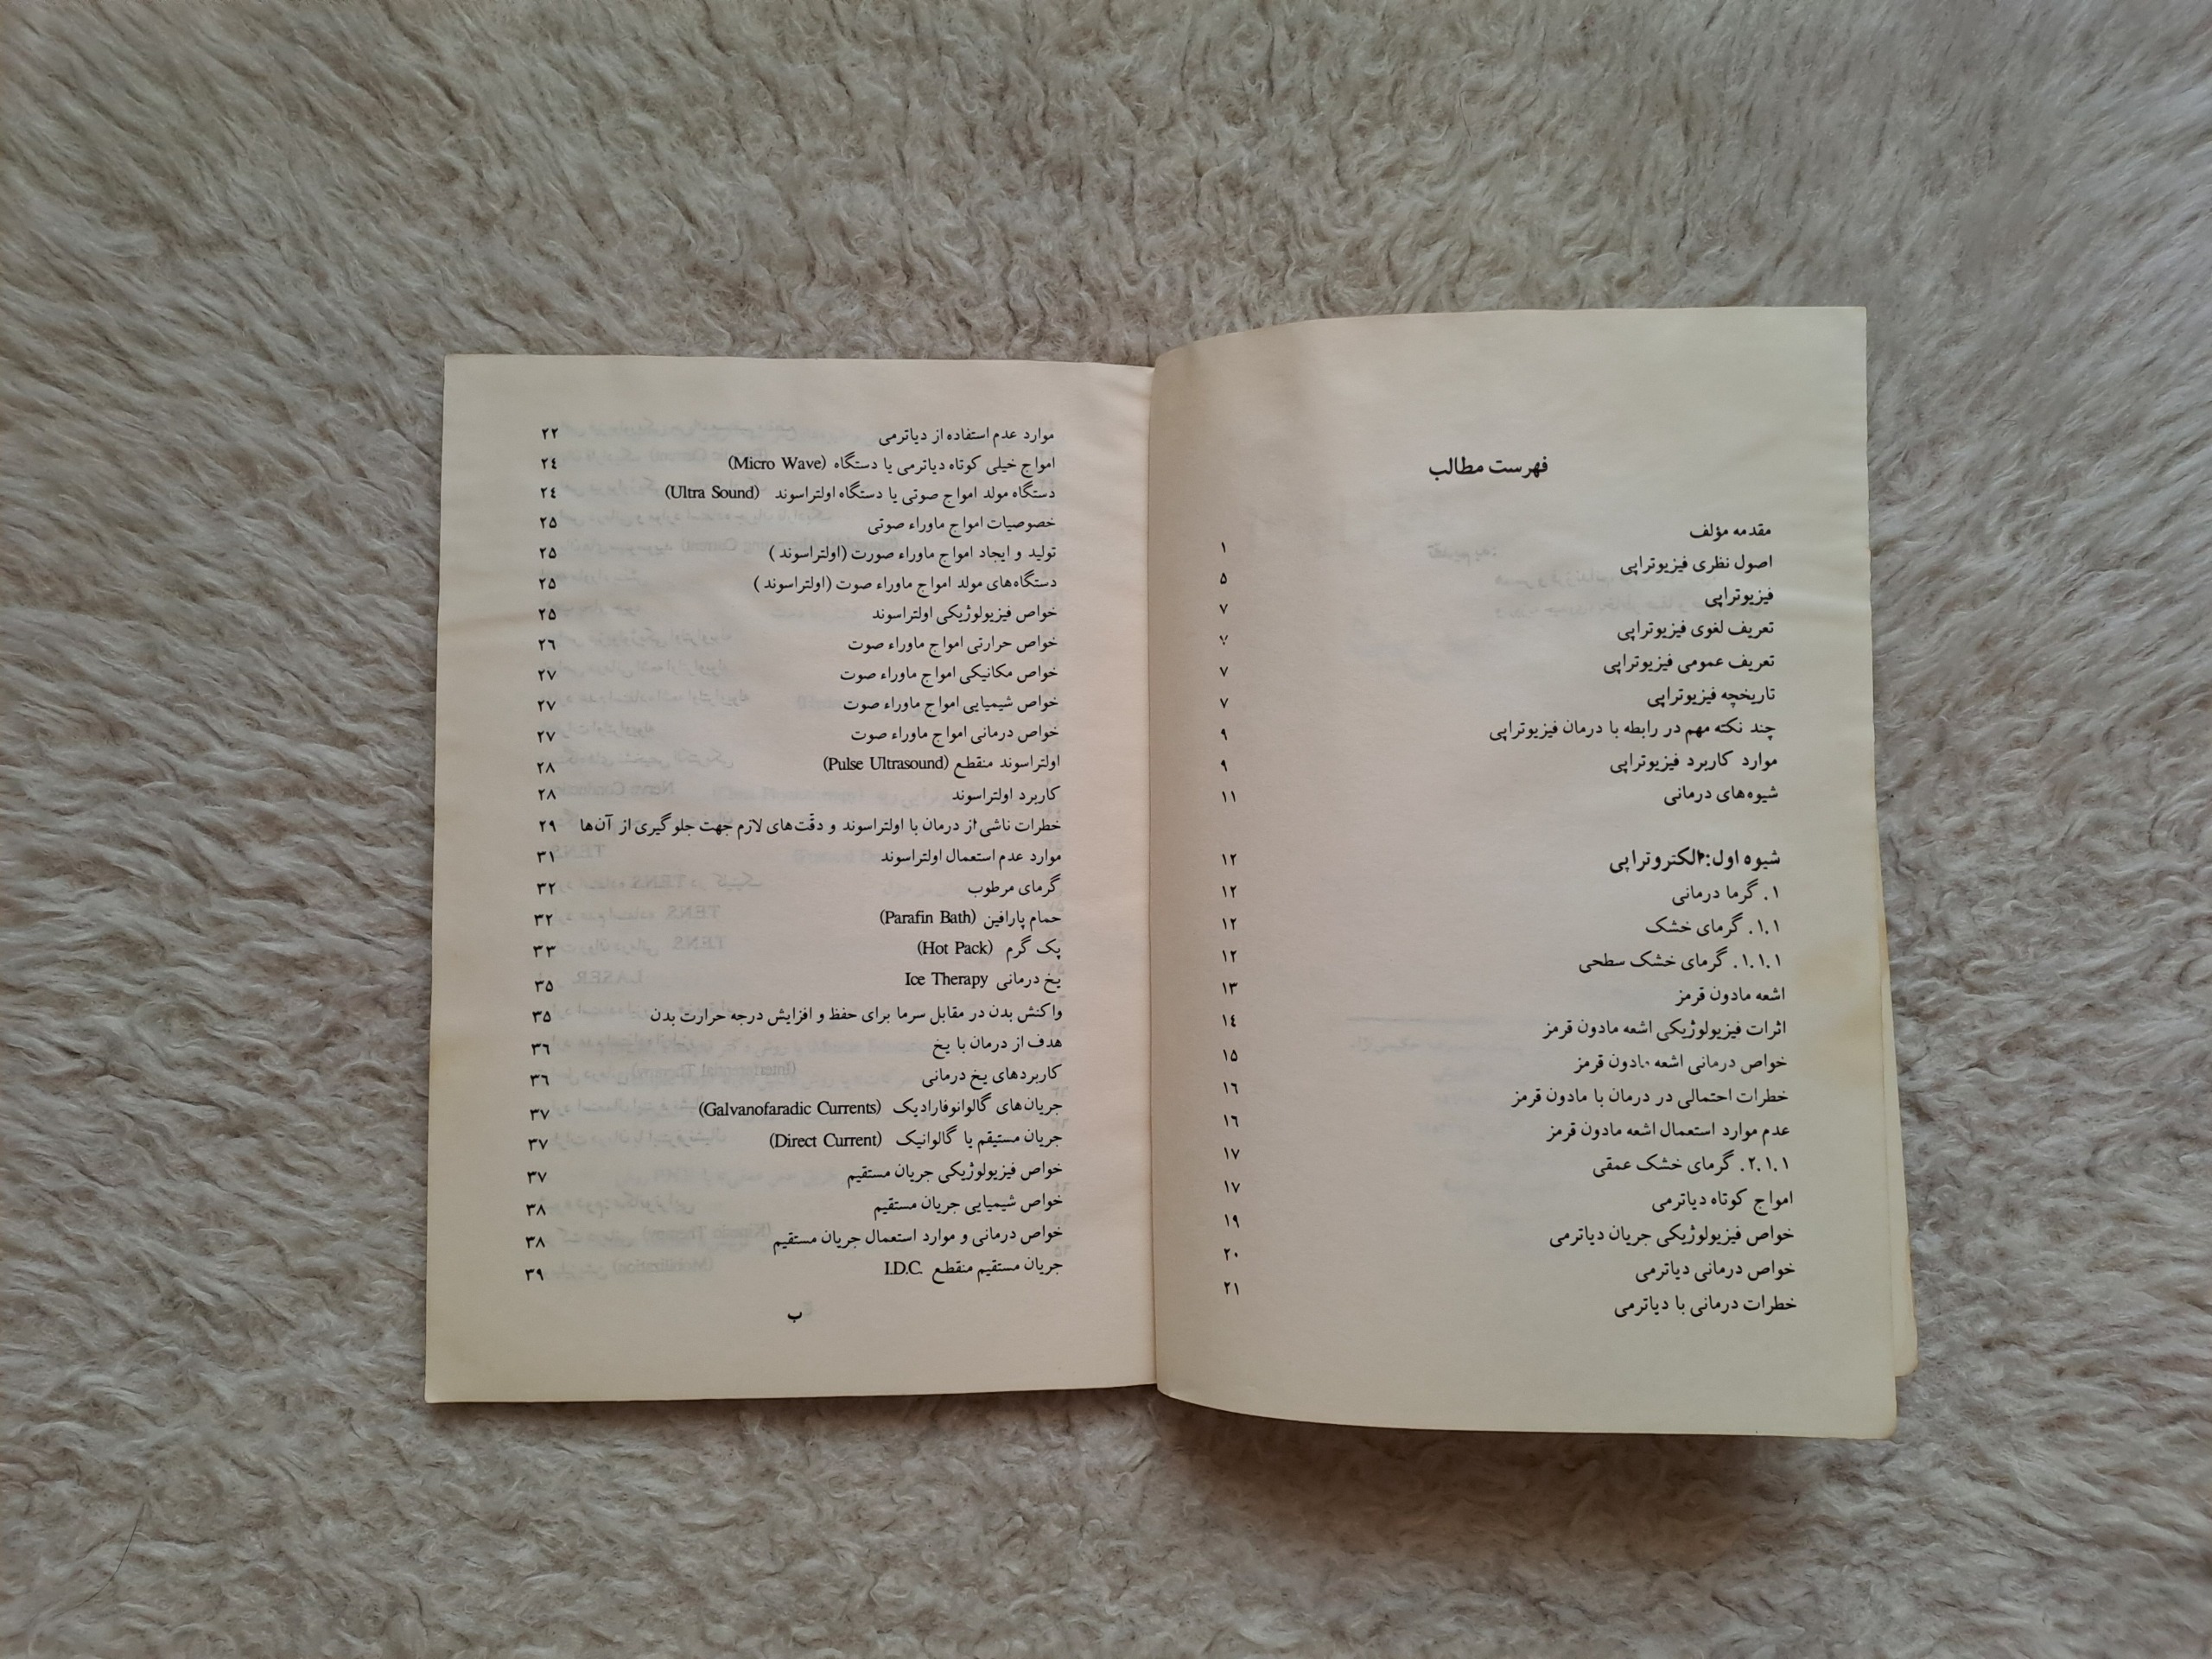 فهرست مطالب
مقدمه مؤلف ۱
اصول نظری فیزیوتراپی ۵
فیزیوتراپی ۷
تعریف لغوی فیزیوتراپی ۷
تعریف عمومی فیزیوتراپی ۷
تاریخچه فیزیوتراپی ۷
چند نکته مهم در رابطه با درمان فیزیوتراپی ۹
موارد کاربرد فیزیوتراپی ۹
شیوه‌های درمانی ۱۱
شیوه اول: الکتروتراپی ۱۲
۱. گرما درمانی ۱۲
۱.۱. گرمای خشک ۱۲
۱.۱.۱. گرمای خشک سطحی ۱۲
اشعه مادون قرمز ۱۳
اثرات فیزیولوژیکی اشعه مادون قرمز ۱٤
خواص درمانی اشعه مادون قرمز ۱۵
خطرات احتمالی در درمان با مادون قرمز ۱٦
عدم موارد استعمال اشعه مادون قرمز ۱٦
۲.۱.۱. گرمای خشک عمقی ۱۷
امواج کوتاه دیاترمی ۱۷
خواص فیزیولوژیکی جریان دیاترمی ۱۹
خواص درمانی دیاترمی ۲۰
خطرات درمانی با دیاترمی ۲۱
موارد عدم استفاده از دیاترمی ۲۲
امواج خیلی کوتاه دیاترمی یا دستگاه (Micro Wave) ۲٤
دستگاه مولد امواج صوتی یا دستگاه اولتراسوند (Ultra Sound) ۲٤
خصوصیات امواج ماوراء صوتی ۲۵
تولید و ایجاد امواج ماوراء صورت (اولتراسوند ) ۲۵
دستگاه‌های مولد امواج ماوراء صوت (اولتراسوند ) ۲۵
خواص فیزیولوژیکی اولتراسوند ۲۵
خواص حرارتی امواج ماوراء صوت ۲٦
خواص مکانیکی امواج ماوراء صوت ۲۷
خواص شیمیایی امواج ماوراء صوت ۲۷
خواص درمانی امواج ماوراء صوت ۲۷
اولتراسوند منقطع (Pulse Ultrasound) ۲۸
کاربرد اولتراسوند ۲۸
خطرات ناشی از درمان با اولتراسوند و دقّت‌های لازم جهت جلوگیری از آن‌ها ۲۹
موارد عدم استعمال اولتراسوند ۳۱
گرمای مرطوب ۳۲
حمام پارافین (Parafin Bath) ۳۲
پک گرم (Hot Pack) ۳۳
یخ درمانی Ice Therapy ۳۵
واکنش بدن در مقابل سرما برای حفظ و افزایش درجه حرارت بدن ۳۵
هدف از درمان با یخ ۳٦
کاربردهای یخ درمانی ۳٦
جریان‌های گالوانوفارادیک (Galvanofaradic Currents) ۳۷
جریان مستیقم یا گالوانیک (Direct Current) ۳۷
خواص فیزیولوژیکی جریان مستقیم ۳۷
خواص شیمیایی جریان مستقیم ۳۸
خواص درمانی و موارد استعمال جریان مستقیم ۳۸
جریان مستقیم منقطع I.D.C. ۳۹
ب